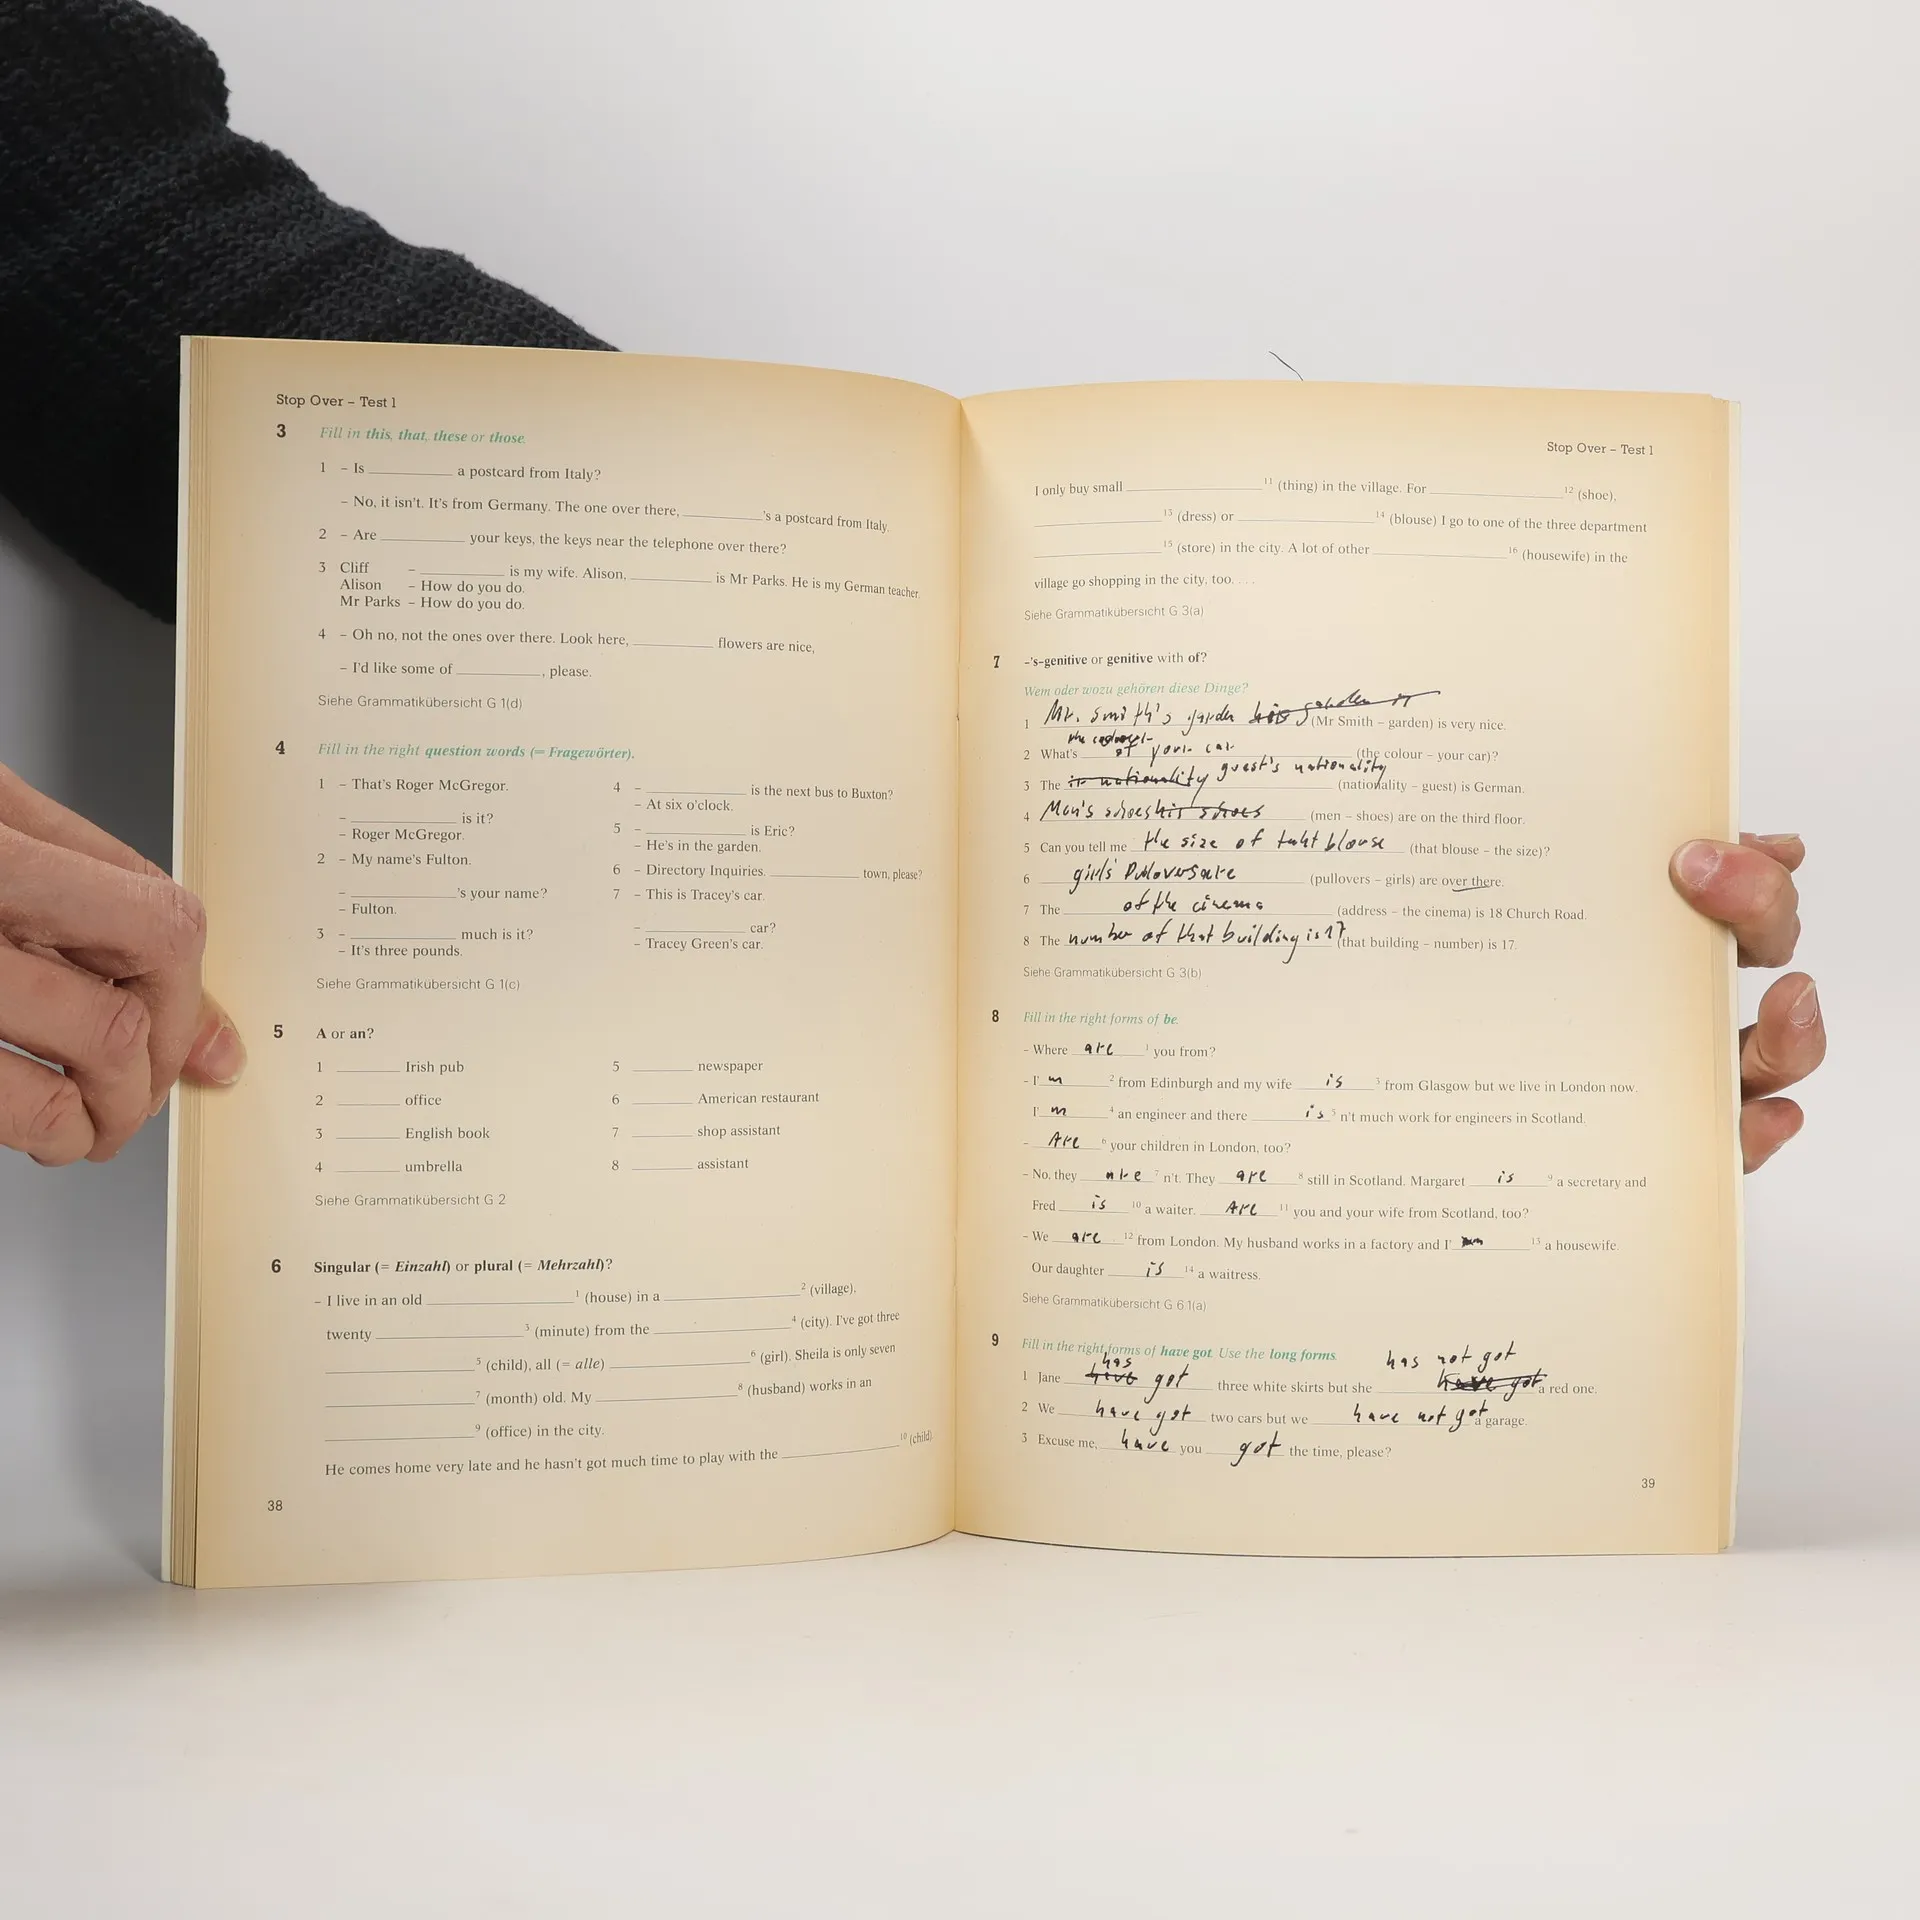 Stop Over – Test 1
3 Fill in this, that, these or those.
1 – Is ________ a postcard from Italy?
– No, it isn't. It's from Germany. The one over there, ________'s a postcard from Italy.
2 – Are ________ your keys, the keys near the telephone over there?
3 Cliff – ________ is my wife. Alison, ________ is Mr Parks. He is my German teacher.
Alison – How do you do.
Mr Parks – How do you do.
4 – Oh no, not the ones over there. Look here, ________ flowers are nice,
– I'd like some of ________, please.
Siehe Grammatikübersicht G 1(d)
4 Fill in the right question words (= Fragewörter).
1 – That's Roger McGregor.
– ________ is it?
– Roger McGregor.
2 – My name's Fulton.
– ________'s your name?
– Fulton.
3 – ________ much is it?
– It's three pounds.
4 – ________ is the next bus to Buxton?
– At six o'clock.
5 – ________ is Eric?
– He's in the garden.
6 – Directory Inquiries. ________ town, please?
7 – This is Tracey's car.
– ________ car?
– Tracey Green's car.
Siehe Grammatikübersicht G 1(c)
5 A or an?
1 ________ Irish pub
2 ________ office
3 ________ English book
4 ________ umbrella
5 ________ newspaper
6 ________ American restaurant
7 ________ shop assistant
8 ________ assistant
Siehe Grammatikübersicht G 2
6 Singular (= Einzahl) or plural (= Mehrzahl)?
– I live in an old ________ 1 (house) in a ________ 2 (village),
twenty ________ 3 (minute) from the ________ 4 (city). I've got three
________ 5 (child), all (= alle) ________ 6 (girl). Sheila is only seven
________ 7 (month) old. My ________ 8 (husband) works in an
________ 9 (office) in the city.
He comes home very late and he hasn't got much time to play with the ________ 10 (child).
38
Stop Over – Test 1
I only buy small ________ 11 (thing) in the village. For ________ 12 (shoe),
________ 13 (dress) or ________ 14 (blouse) I go to one of the three department
________ 15 (store) in the city. A lot of other ________ 16 (housewife) in the
village go shopping in the city, too. ...
Siehe Grammatikübersicht G 3(a)
7 -'s-genitive or genitive with of?
Wem oder wozu gehören diese Dinge?
1 Mr. Smith's garden his garden is (Mr Smith – garden) is very nice.
the colour
2 What's of your car (the colour – your car)?
3 The nationality guest's nationality (nationality – guest) is German.
4 Men's shoes his shoes (men – shoes) are on the third floor.
5 Can you tell me the size of blouse (that blouse – the size)?
6 girls Pulovers are (pullovers – girls) are over there.
7 The of the cinema (address – the cinema) is 18 Church Road.
8 The number of that building is 17 (that building – number) is 17.
Siehe Grammatikübersicht G 3(b)
8 Fill in the right forms of be.
– Where are 1 you from?
– I'm 2 from Edinburgh and my wife is 3 from Glasgow but we live in London now.
I'm 4 an engineer and there is 5 n't much work for engineers in Scotland.
– Are 6 your children in London, too?
– No, they are 7 n't. They are 8 still in Scotland. Margaret is 9 a secretary and
Fred is 10 a waiter. Are 11 you and your wife from Scotland, too?
– We are 12 from London. My husband works in a factory and I'm 13 a housewife.
Our daughter is 14 a waitress.
Siehe Grammatikübersicht G 6.1(a)
9 Fill in the right forms of have got. Use the long forms.
has has not got
1 Jane have got three white skirts but she have got a red one.
2 We have got two cars but we have not got a garage.
3 Excuse me, have you got the time, please?
39